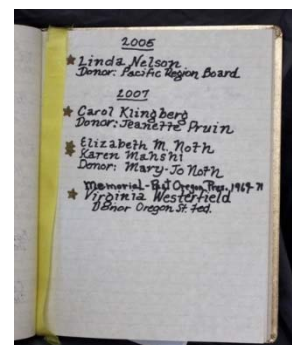 2006
Linda Nelson
Donor: Pacific Region Board
2007
Carol Klingberg
Donor: Jeanette Pruin
Elizabeth M. Noth
Karen Mahshi
Donor: Mary-Jo Noth
Memorial - Past Oregon Pres. 1969-71
Virginia Westerfield
Donor Oregon St Fed.